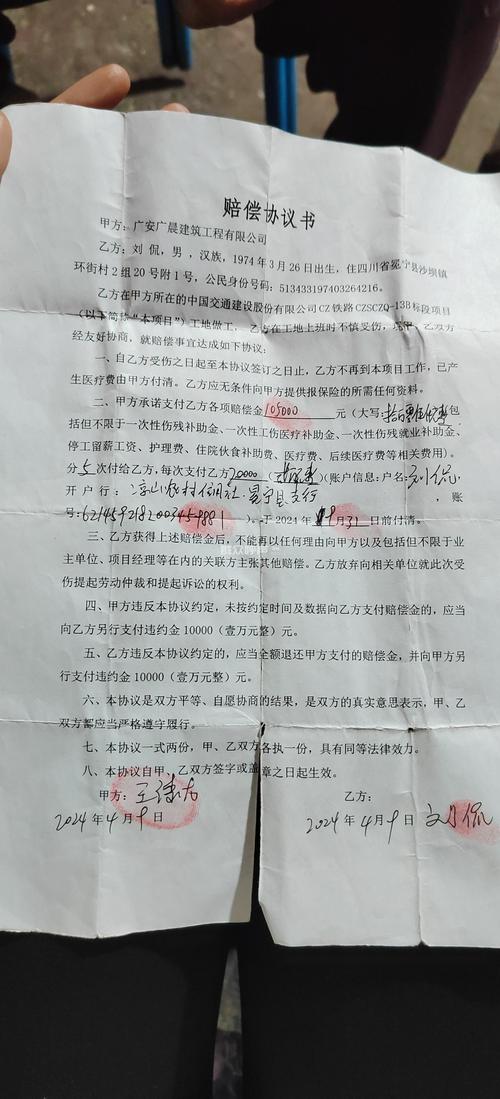 赔偿协议书
甲方：广安广晨建筑工程有限公司
乙方：刘 侃，男，汉族，1974年3月26日出生，住四川省冕宁县沙坝镇
环街村2组20号附1号，公民身份号码：513433197403264216。
乙方在甲方所在的中国交通建设股份有限公司CZ铁路CZSCZQ-13B标段项目
（以下简称“本项目”）工地做工，乙方在工地上班时不慎受伤，现甲、乙双方
经友好协商，就赔偿事宜达成如下协议：
一、自乙方受伤之日起至本协议签订之日止，乙方不再到本项目工作，已产
生医疗费由甲方付清。乙方应无条件向甲方提供报保险的所需任何资料。
二、甲方承诺支付乙方各项赔偿金105000元（大写：包
括但不限于一次性伤残补助金、一次性工伤医疗补助金、一次性伤残就业补助金、
停工留薪工资、护理费、住院伙食补助费、医疗费、后续医疗费等相关费用）。
分5次付给乙方，每次支付乙方（账户信息：户名：刘侃
开户行：凉山农村信用社冕宁县支行，账
号：），于2024年月31日前付清。
三、乙方获得上述赔偿金后，不能再以任何理由向甲方以及包括但不限于业
主单位、项目经理等在内的关联方主张其他赔偿。乙方放弃向相关单位就此次受
伤提起劳动仲裁和提起诉讼的权利。
四、甲方违反本协议约定，未按约定时间及数据向乙方支付赔偿金的，应当
向乙方另行支付违约金10000（壹万元整）元。
五、乙方违反本协议约定的，应当全额退还甲方支付的赔偿金，并向甲方另
行支付违约金10000（壹万元整）元。
六、本协议是双方平等、自愿协商的结果，是双方的真实意思表示，甲、乙
双方都应当严格遵守履行。
七、本协议一式两份，甲、乙双方各执一份，具有同等法律效力。
八、本协议自甲、乙双方签字或盖章之日起生效。
甲方：王
乙方：
2024年4月9日
2024年4月9日 刘侃